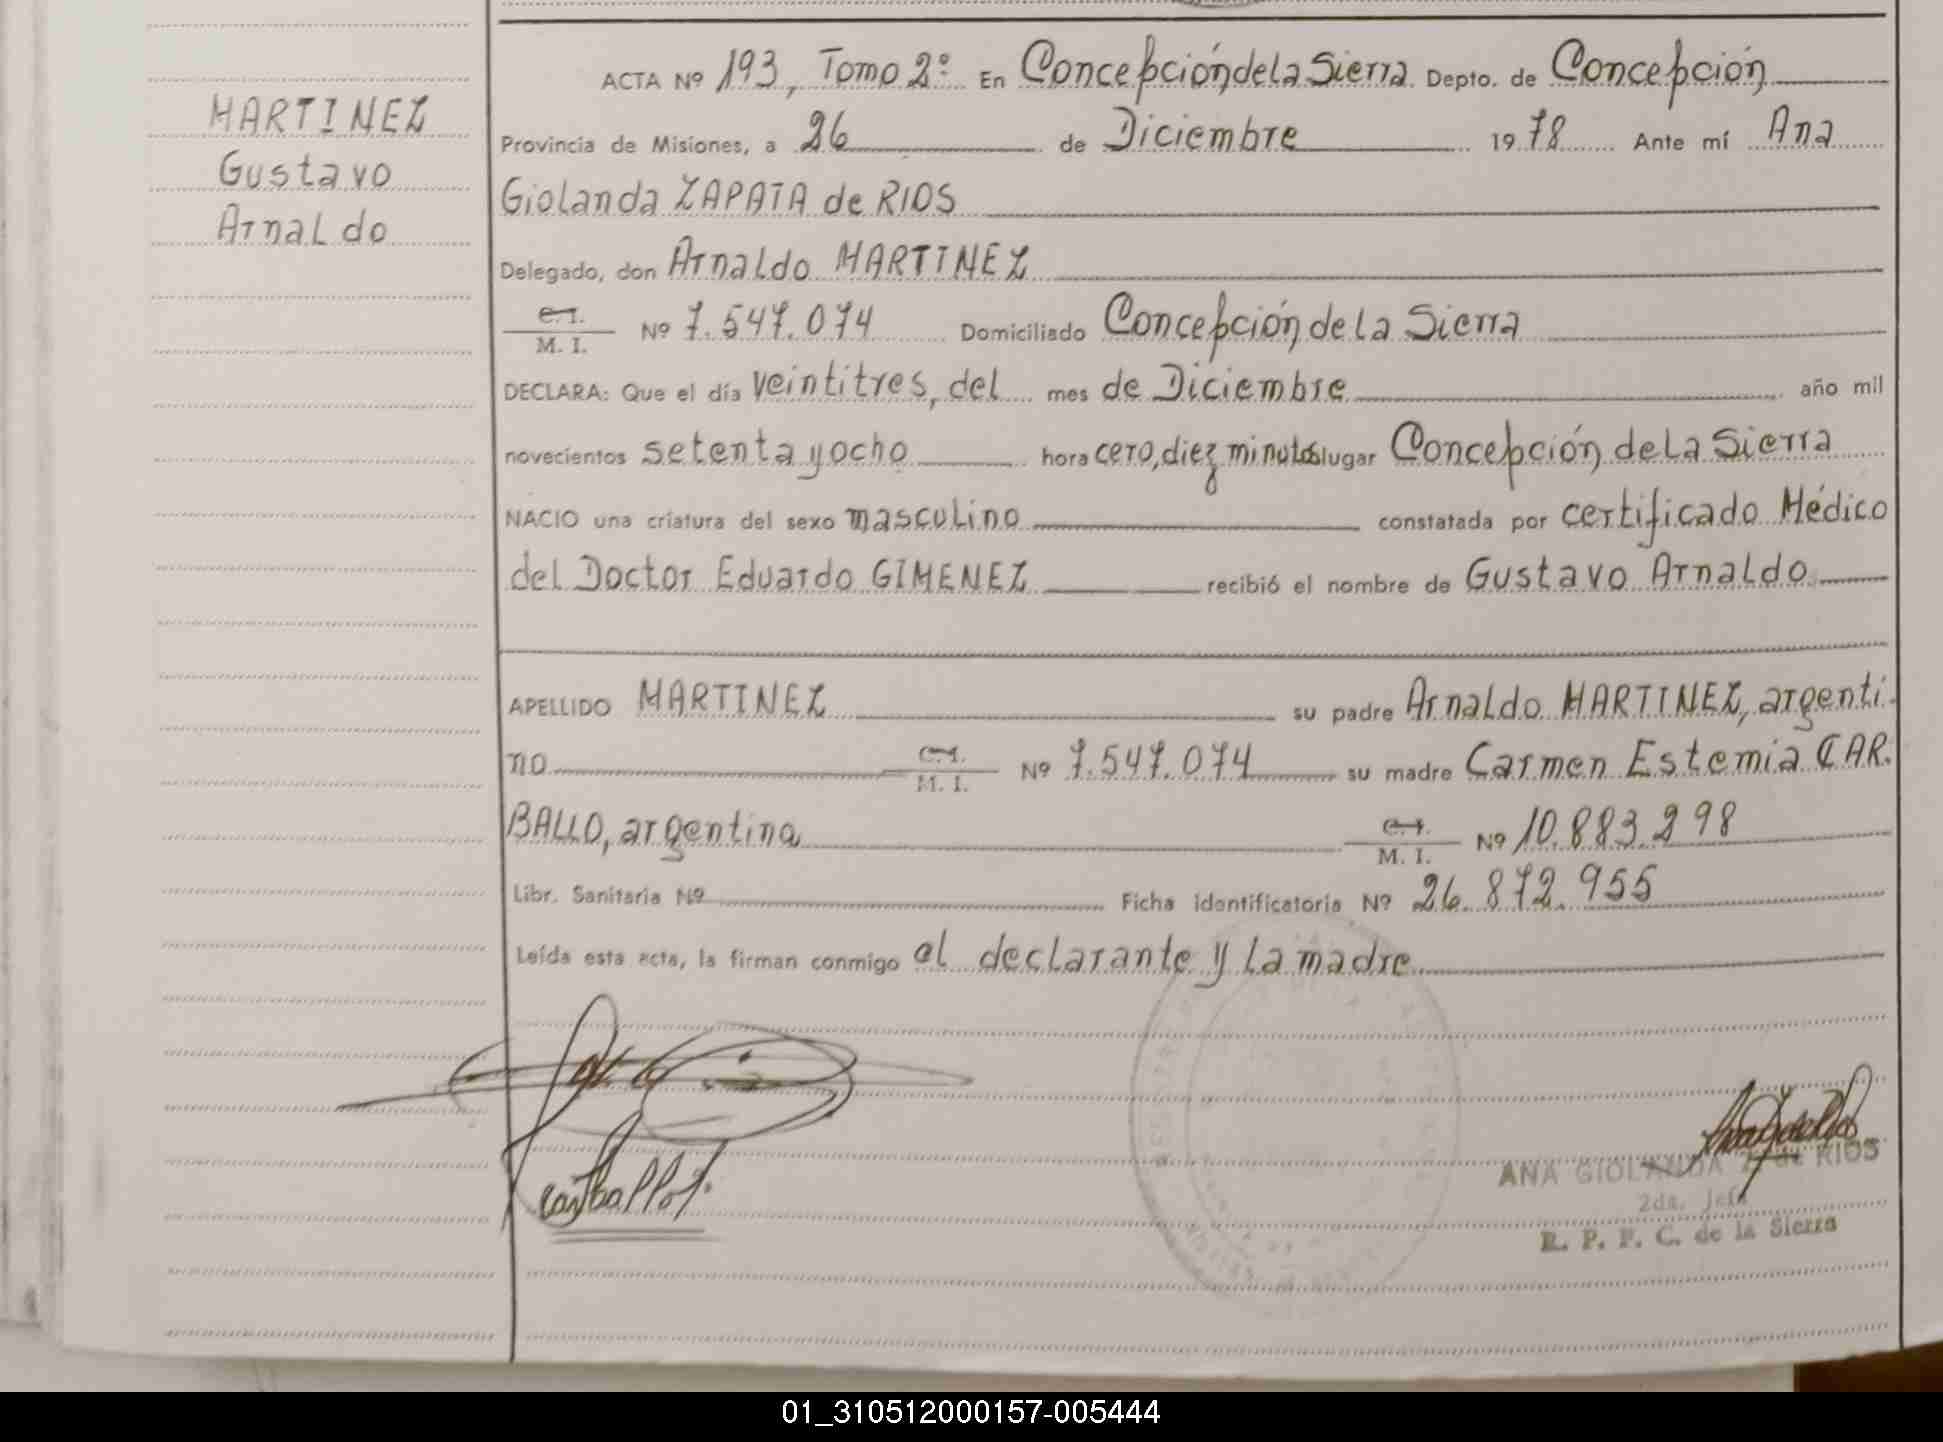 MARTINEZ
Gustavo
Arnaldo
ACTA Nº 193, Tomo 2º En Concepción de la Sierra Depto. de Concepción
Provincia de Misiones, a 26 de Diciembre 1978 Ante mí Ana
Giolanda ZAPATA de RIOS
Delegado, don Arnaldo MARTINEZ
C. I.
M. I. Nº 7.547.074 Domiciliado Concepción de la Sierra
DECLARA: Que el día veintitres, del mes de Diciembre año mil
novecientos setenta y ocho hora cero, diez minutos lugar Concepción de la Sierra
NACIO una criatura del sexo masculino constatada por certificado Médico
del Doctor Eduardo GIMENEZ recibió el nombre de Gustavo Arnaldo
APELLIDO MARTINEZ su padre Arnaldo MARTINEZ, argenti-
no C. I.
M. I. Nº 7.547.074 su madre Carmen Estemia CAR-
BALLO, argentina C. I.
M. I. Nº 10.883.298
Libr. Sanitaria Nº Ficha identificatoria Nº 26.872.955
Leída esta acta, la firman conmigo el declarante y la madre
ANA GIOLANDA Z. de RIOS
2da. Jefa
R. P. P. C. de la Sierra
01_310512000157-005444